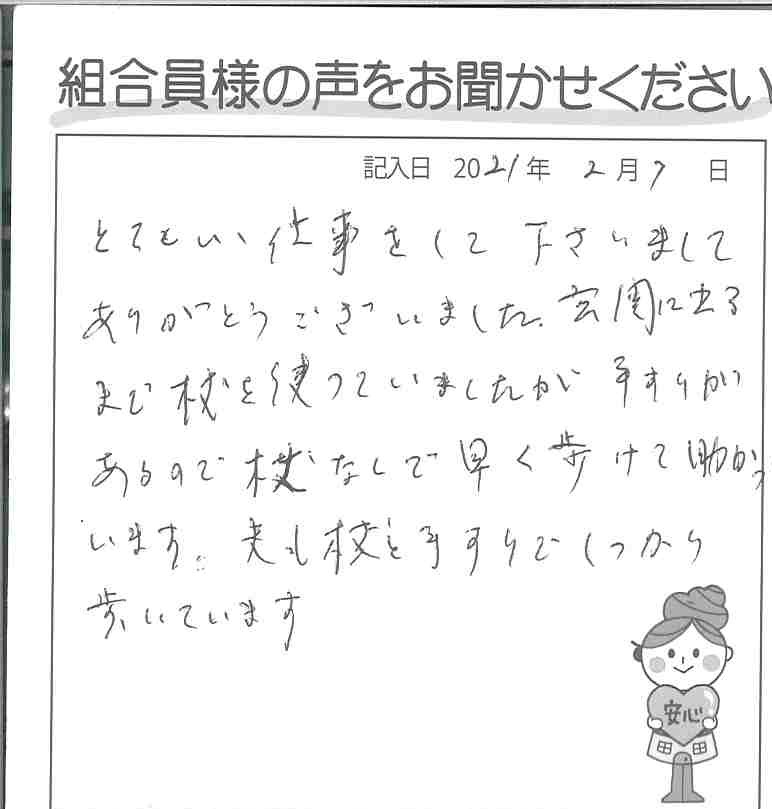 組合員様の声をお聞かせください
記入日 2021年 2月7日
とてもいい仕事をして下さいまして
ありがとうございました、玄関に出る
まで杖を使っていましたが手すりが
あるので杖なしで早く歩けて助かって
います。夫も杖と手すりでしっかり
歩いています
安心